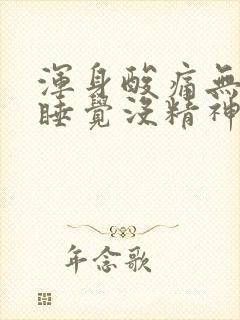 渾身酸痛無
睡覺沒精神
年念歌